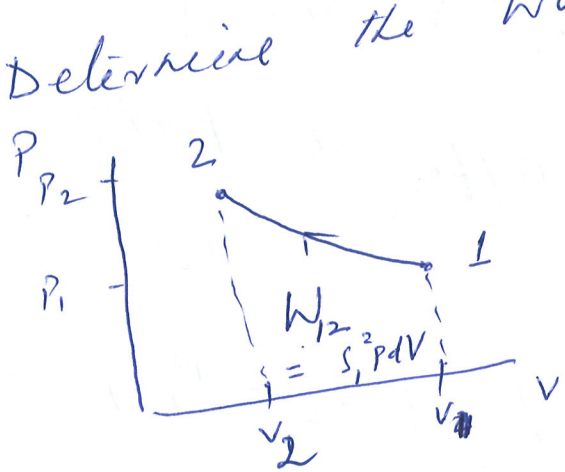 Determine the
P
P2
2
P1
1
W12
= ∫₁²PdV
V
V2